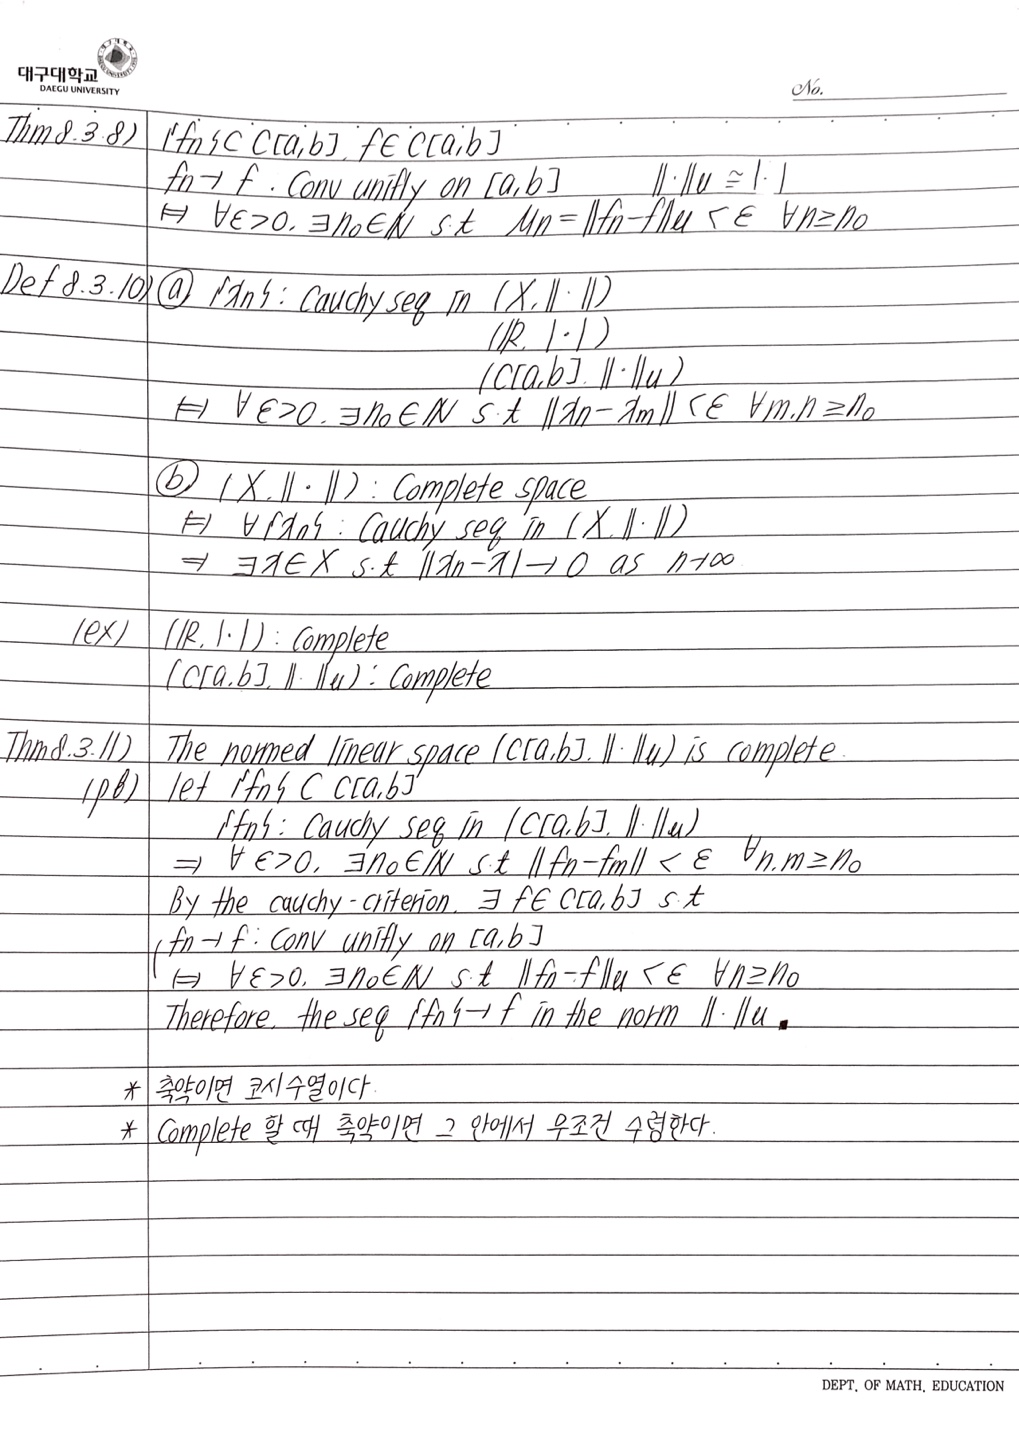 대구대학교
DAEGU UNIVERSITY
No.
Thm 8.3.8) {fn} ⊂ C[a,b], f ∈ C[a,b]
fn → f : Conv unifly on [a,b] ||·||u ≅ |·|
⇔ ∀ε>0, ∃n₀∈ℕ s.t Mn = ||fn-f||u < ε ∀n≥n₀
Def 8.3.10) ⓐ {xn} : Cauchy seq in (X, ||·||)
(ℝ, |·|)
(C[a,b], ||·||u)
⇔ ∀ε>0, ∃n₀∈ℕ s.t ||xn-xm|| < ε ∀m,n ≥n₀
ⓑ (X, ||·||) : Complete space
⇔ ∀{xn} : Cauchy seq in (X, ||·||)
⇒ ∃x∈X s.t ||xn-x| → 0 as n→∞
(ex) (ℝ, |·|) : Complete
(C[a,b], ||·||u) : Complete
Thm 8.3.11) The normed linear space (C[a,b], ||·||u) is complete.
(pf) let {fn} ⊂ C[a,b]
{fn} : Cauchy seq in (C[a,b], ||·||u)
⇒ ∀ε>0, ∃n₀∈ℕ s.t ||fn-fm|| < ε ∀n,m≥n₀
By the cauchy-criterion, ∃ f∈ C[a,b] s.t
fn → f : Conv unifly on [a,b]
⇔ ∀ε>0, ∃n₀∈ℕ s.t ||fn-f||u < ε ∀n≥n₀
Therefore, the seq {fn} → f in the norm ||·||u ■
* 축약이면 코시수열이다.
* Complete 할 때 축약이면 그 안에서 무조건 수렴한다.
DEPT. OF MATH. EDUCATION